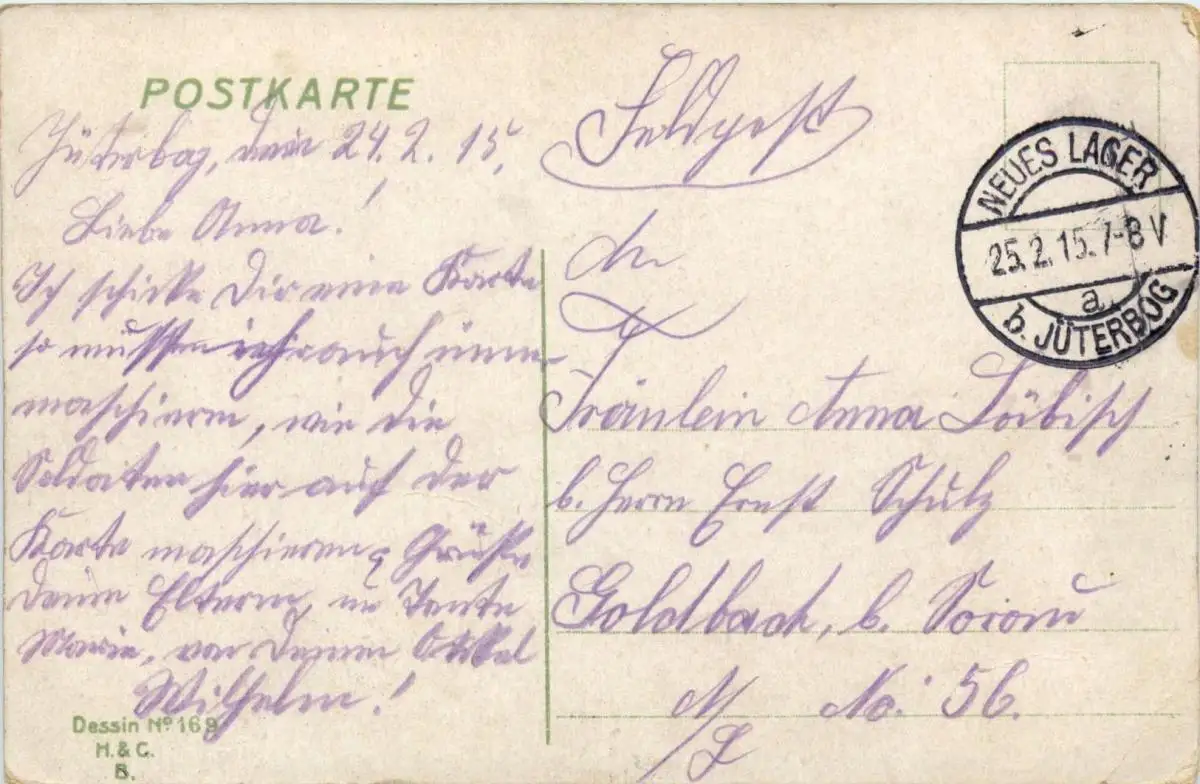 POSTKARTE
Jüterbog, den 24. 2. 15.
Liebe Anna!
Ich schicke Dir eine Karte
so mussten wir auch imm
maschieren, wie die
Soldaten hier auf der
Karte maschieren, Grüße
deine Eltern, u Tante
Marie, von Deinem Onkel
Wilhelm!
Dessin Nº 169
H. & C.
B.
Feldpost
An
Fräulein Anna Löibisch
b. Herrn Ernst Schulz
Goldbach, b. Sorau
No: 56.
N/L
NEUES LAGER
25.2.15.7-8V
a
b. JÜTERBOG